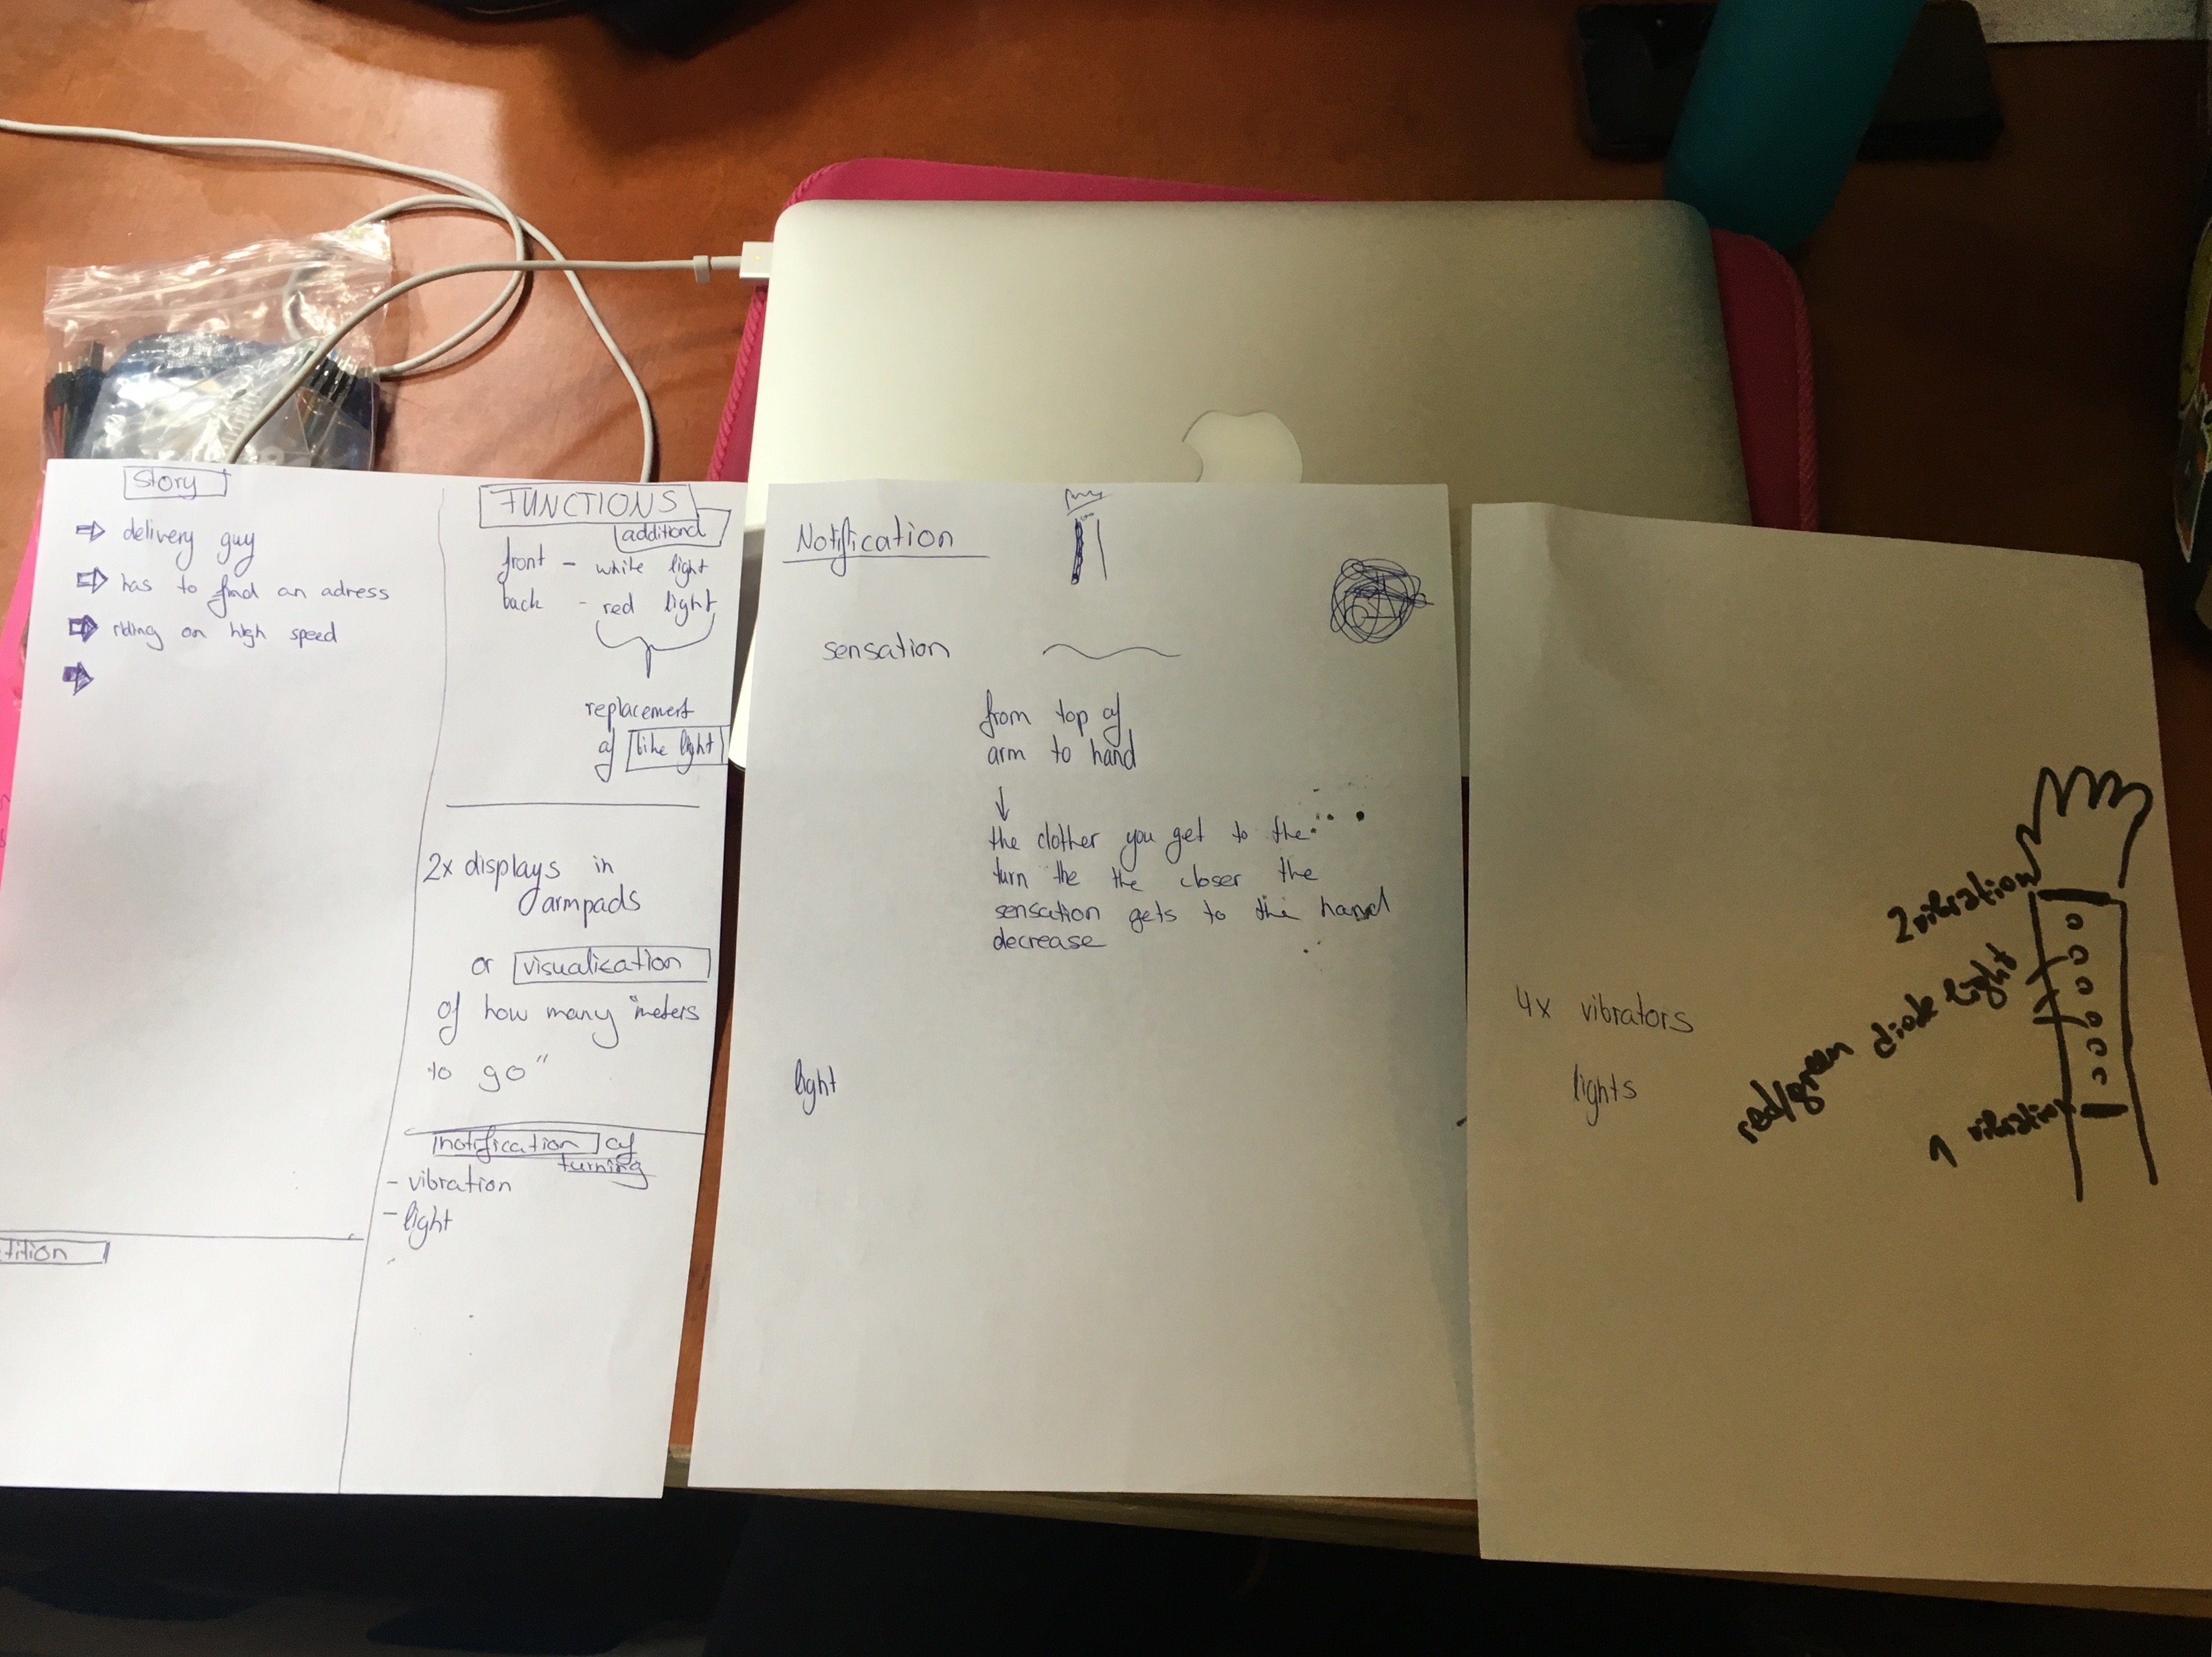 Story
⇨ delivery guy
⇨ has to find an adress
⇨ riding on high speed
⇨
tition
FUNCTIONS
additional
front - white light
back - red light
replacement
of bike light
2x displays in
armpads
or visualization
of how many "meters
to go"
notification of
turning
- vibration
- light
Notification
sensation
from top of
arm to hand
↓
the clother you get to the
turn the the closer the
sensation gets to the hand
decrease
light
4x vibrators
lights
2 vibration
red/green diode light
1 vibration